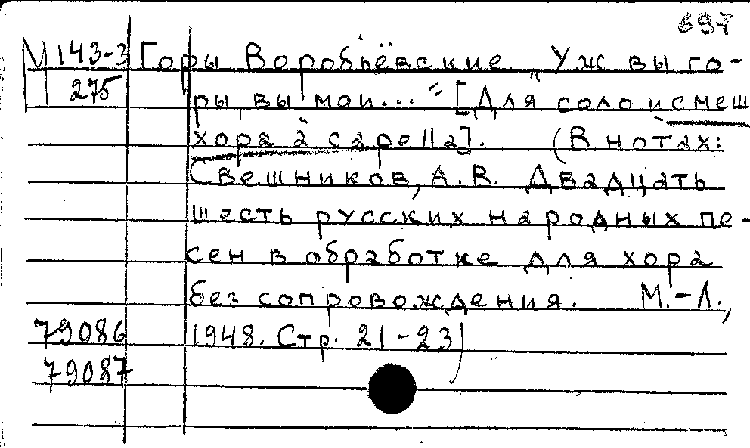 697
М 143-3 Горы Воробьёвские. „Уж вы го-
275 ры вы мои..." [Для соло и смеш
хора a capella]. (В нотах:
Свешников, А.В. Двадцать
шесть русских народных пе-
сен в обработке для хора
без сопровождения. М.-Л.,
79086 1948. Стр. 21-23)
79087